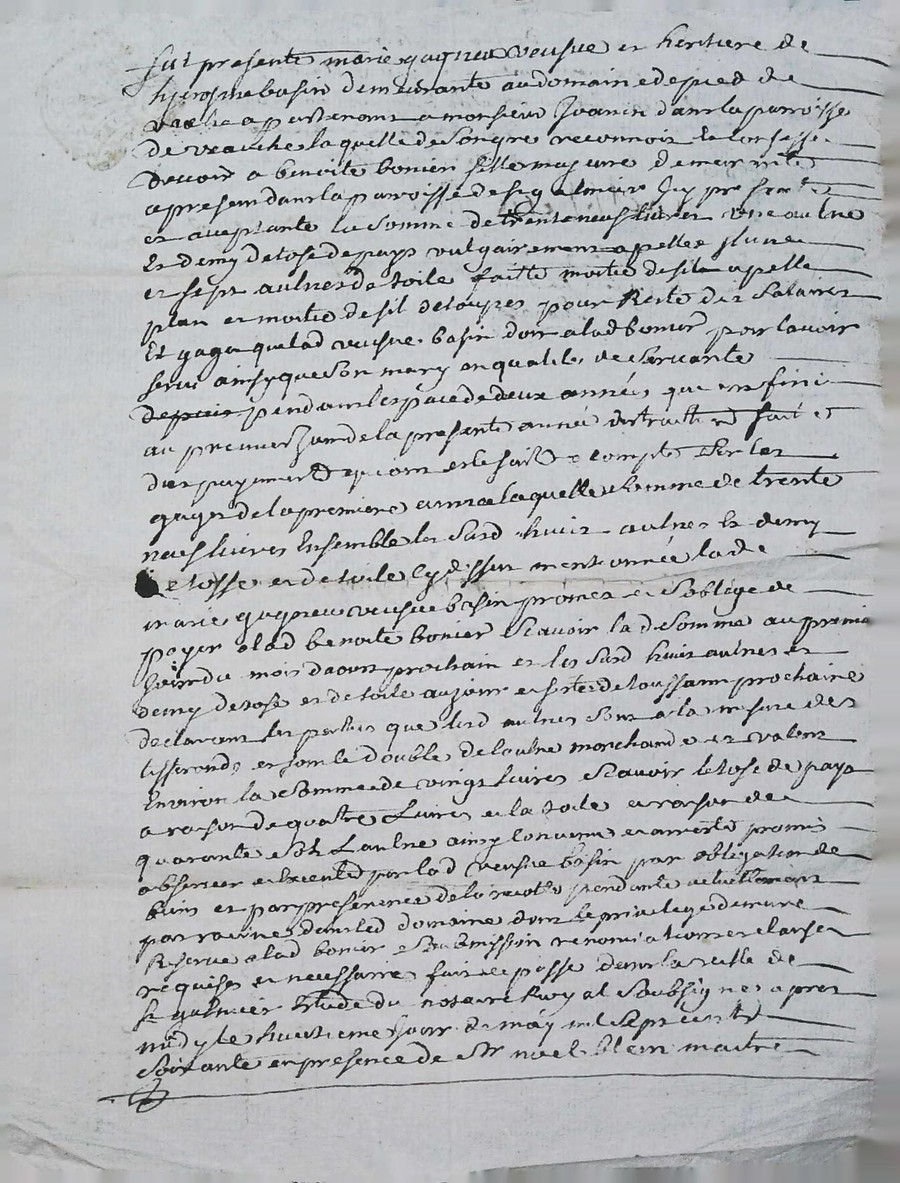 fut presente marie gagneu veusve et heritiere de
hierosme basin demeurante au domaine de pied de
vache apartenant a monsieur Joanin dans la parroisse
de veauche laquelle de son gre reconnoit et confesse
devoir a benoite bonier fille majeure demeurante
a present dans la paroisse de st galmier icy presente
et aceptante la somme de trente neuf livres une aulne
et demy de tose de pays vulgairement apellee
et sept aulnes de toile faitte moitie de fil apelle
plan et moitie de fil detoupes pour Reste des Salaires
et gages que lad veusve basin doit a lad bonier pour lavoir
servi ainsy que son mary en qualite de servante
depuis pendant lespace de deux années qui ont fini
au premier jour de la presente année distraction fait
des payements qui ont este faits a compte sur les
gages de la premiere année laquelle somme de trente
neuf livres Ensemble les susd huit aulnes et demy
de tosse et de toile cy dessus mentionnée lade
marie gagneu veusve basin promet et soblige de
payer a lad benoite bonier scavoir lad somme au premier
jour du mois daoust prochain et les susd huit aulnes et
demy de tose et de toile au jour et feste de toussaint prochaine
declarant les parties que lesd aulnes sont a la mesure des
tisserands et font le double de laulne marchande et valent
Environ la somme de vingt livres scavoir le tose de pays
a raison de quatre livres et la toile a raison de
quarante sols L'aulne ainsy convenu et arresté promis
observer et executer par lad veusve basin par obligation de
biens et par preference de la recolte pendante actuellement
par racine dans led domaine dont le privilege demeure
Reservé a lad bonier soubmission renonciation et clauses
requises et necessaires fait et passé dans la ville de
st galmier Etude du notaire Royal soubsigné apres
midy le huitieme jour de may mil sept cents
soixante en presence de Sr noel maitre